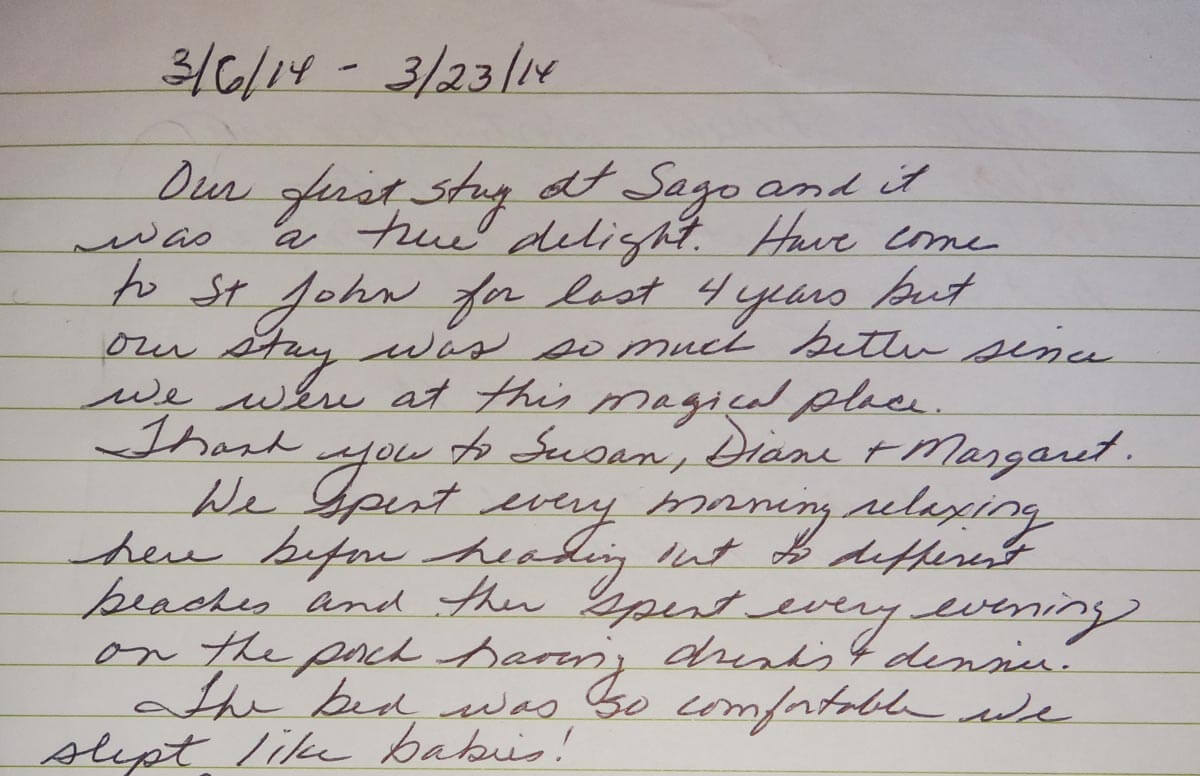 3/6/14 - 3/23/14
Our first stay at Sago and it
was a true delight. Have come
to St John for last 4 years but
our stay was so much better since
we were at this magical place.
Thank you to Susan, Diane + Margaret.
We spent every morning relaxing
here before heading out to different
beaches and then spent every evening
on the porch having drinks + dinner.
The bed was so comfortable we
slept like babies!